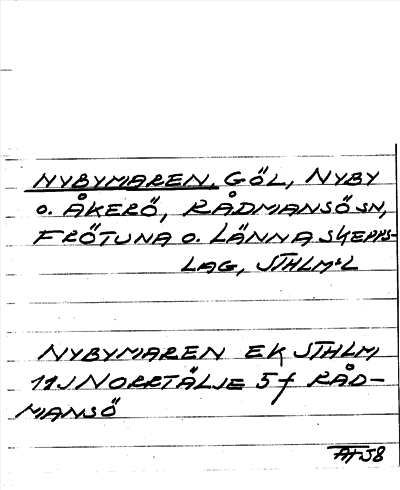 NYBYMAREN, GÖL, NYBY
o. ÅKERÖ, RÅDMANSÖ SN,
FRÖTUNA o. LÄNNA SKEPPS-
LAG, STHLMS L
NYBYMAREN EK STHLM
11J NORRTÄLJE 5f RÅD-
MANSÖ